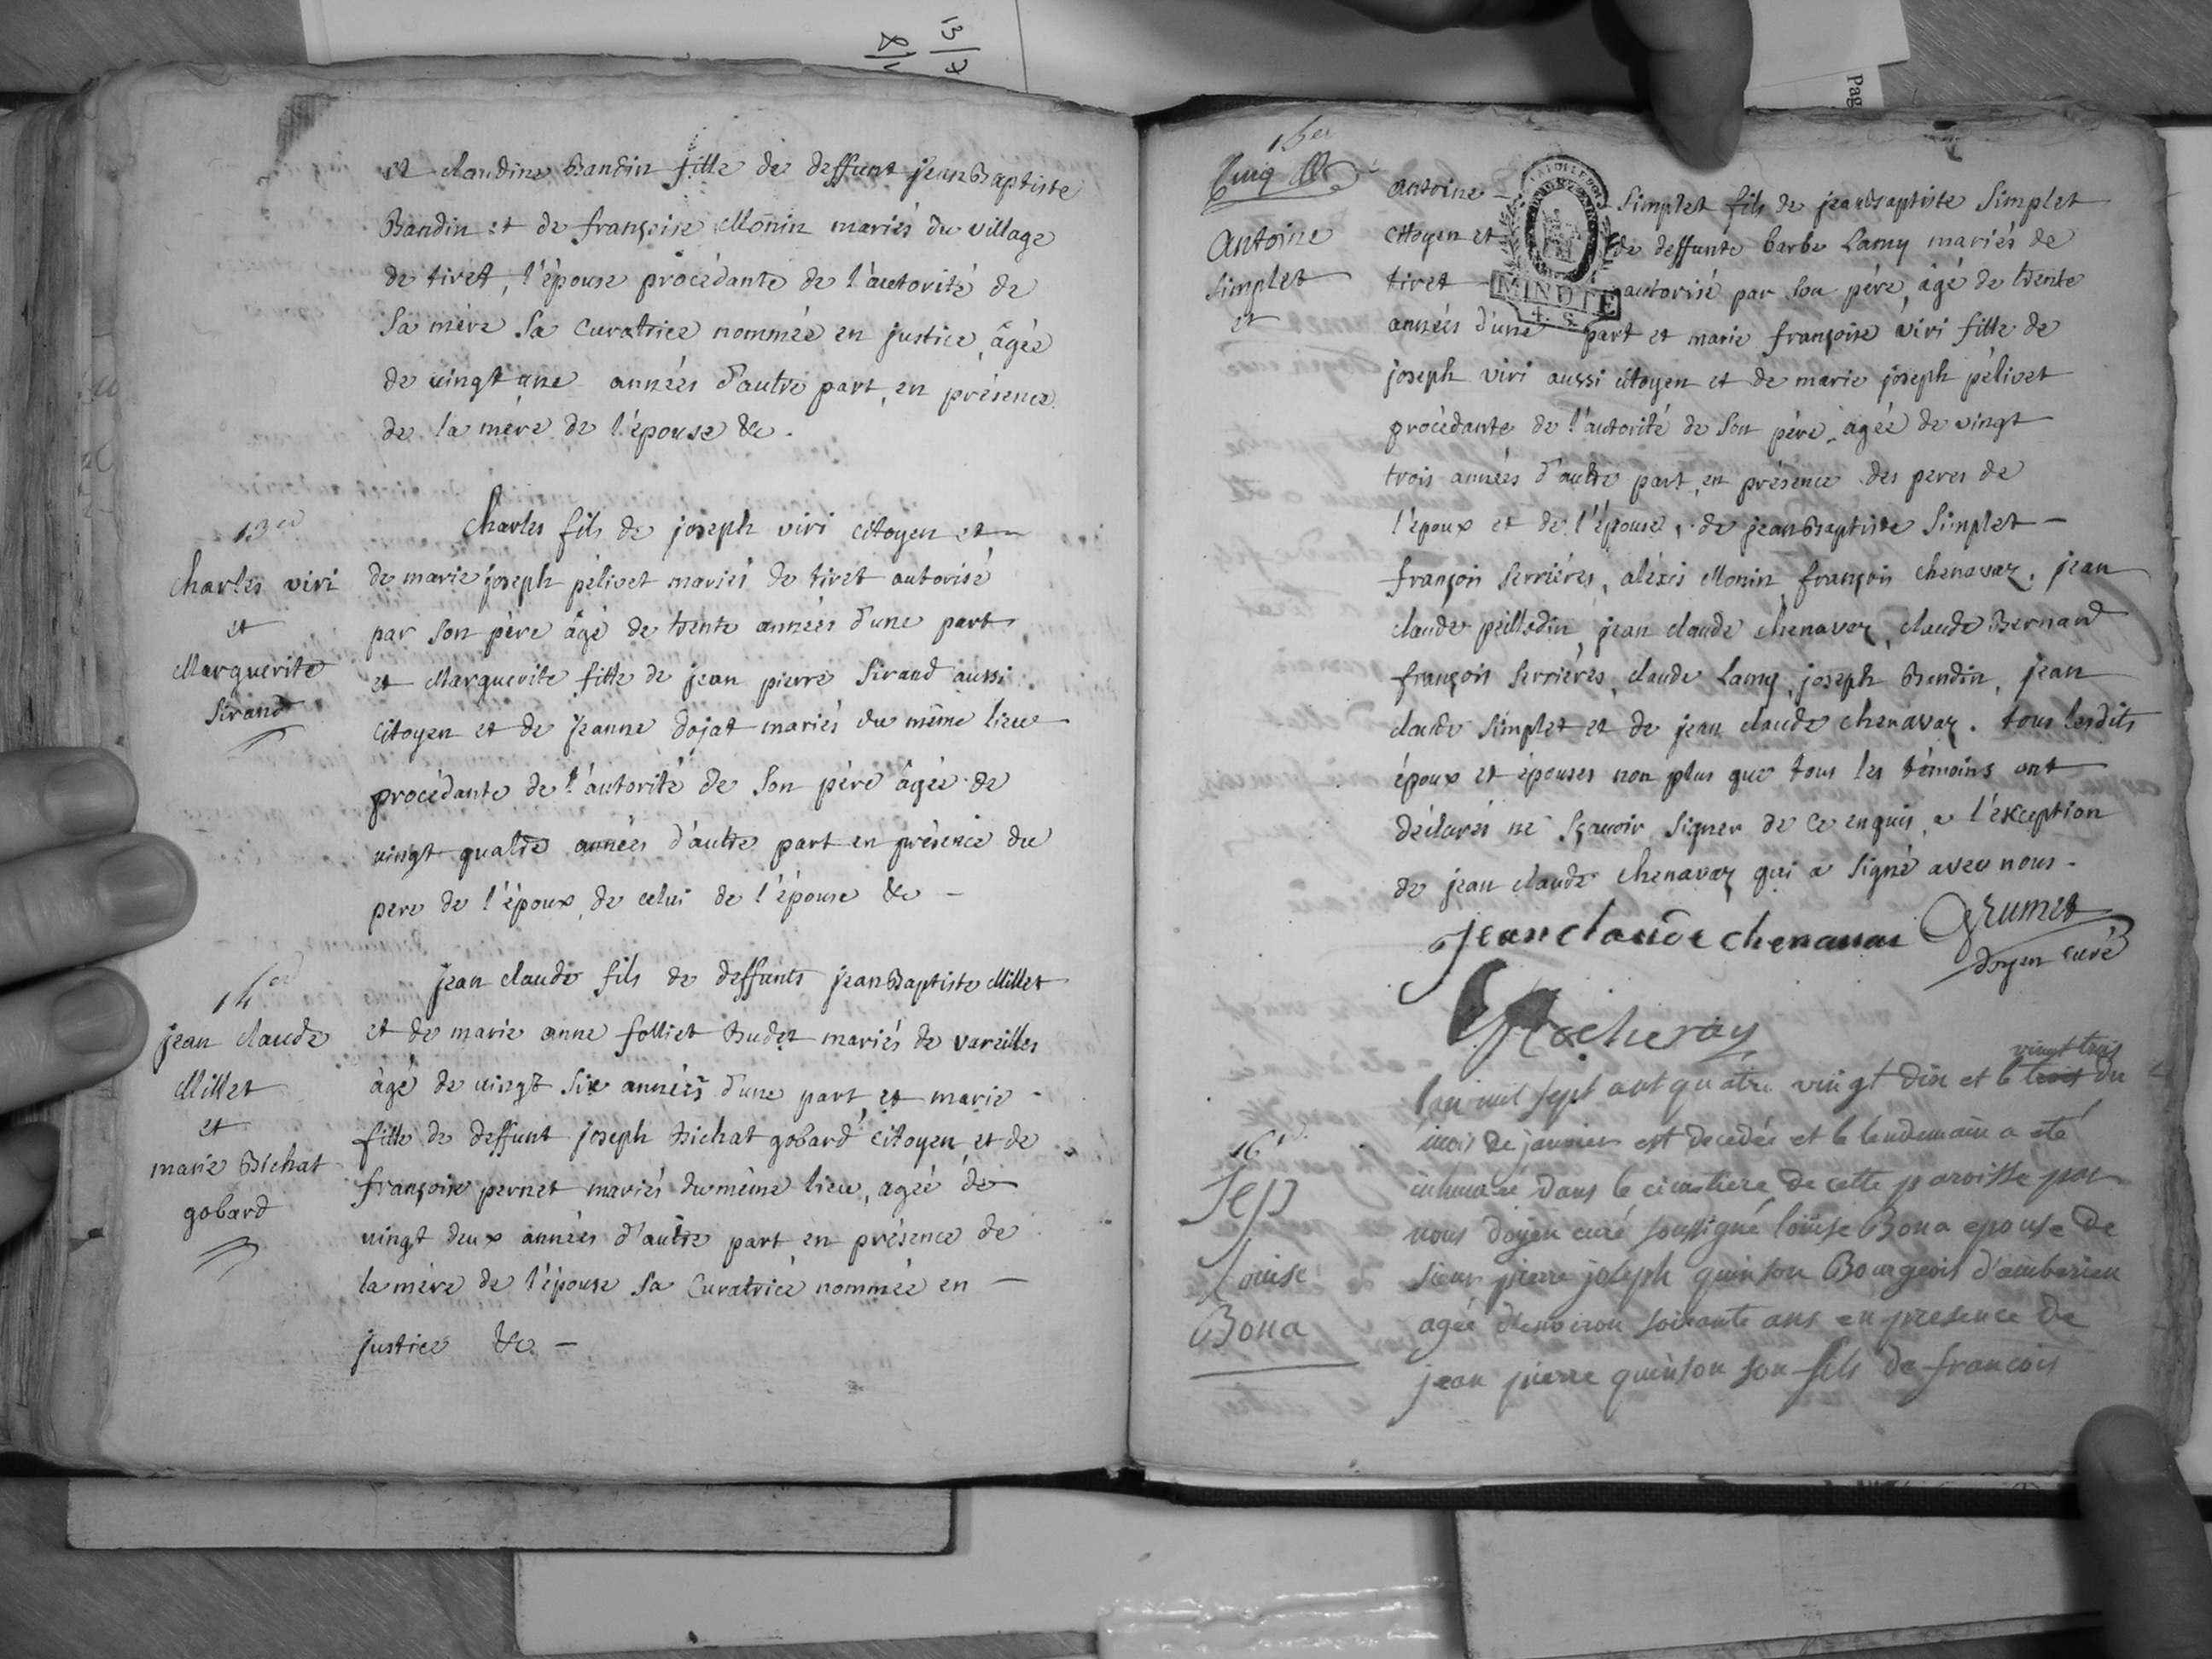 13/7
8/1
Pag
et claudine Bandin fille de deffunt jean Baptiste
Bandin et de françoise Monin mariés du village
de tiret, l'épouse procédante de l'autorité de
sa mère sa curatrice nommée en justice, âgée
de vingt une années d'autre part, en présence
de la mère de l'épouse &c.
13er
Charles viri
et
Marguerite
Sirand
Charles fils de joseph viri citoyen et
de marie joseph pélivet mariés de tiret autorisé
par son père âgé de trente années d'une part
et Marguerite fille de jean pierre Sirand aussi
citoyen et de jeanne dojat mariés du même lieu
procédante de l'autorité de son père âgée de
vingt quatre années d'autre part en présence du
pere de l'époux, de celui de l'épouse &c
14er
jean claude
Millet
et
marie Bichat
gobard
jean claude fils de deffunts jean Baptiste Millet
et de marie anne folliet Budet mariés de vareilles
âgé de vingt six années d'une part, et marie
fille de deffunt joseph Bichat gobard citoyen et de
françoise pernet mariés du même lieu, agée de
vingt deux années d'autre part, en présence de
la mère de l'épouse sa curatrice nommée en
justice &c
15er
Cinq
Antoine
Simplet
et
antoine Simplet fils de jean Baptiste Simplet
citoyen et de deffunte barbe Lamy mariés de
tiret autorisé par son père, âgé de trente
MINUTE
4. S.
années d'une part et marie françoise viri fille de
joseph viri aussi citoyen et de marie joseph pélivet
procédante de l'autorité de son père, agée de vingt
trois années d'autre part, en présence des peres de
l'époux et de l'épouse, de jean Baptiste Simplet
françois Serrières, alexis Monin, françois chenavaz, jean
claude peilledin, jean claude chenavaz, claude Bernard
françois Serrières, claude Lamy, joseph Bandin, jean
claude Simplet et de jean claude chenavaz. tous lesdits
époux et épouses non plus que tous les témoins ont
déclarés ne sçavoir signer de ce enquis, a l'exception
de jean claude chenavaz qui a signé avec nous.
jean claude chenavas Grumet
doyen curé
Rocheray
16
Sep
Louise
Bona
vingt trois
l'an mil sept cent quatre vingt dix et le trois du
mois de janvier est decedée et le lendemain a eté
inhumée dans le cimetiere de cette paroisse par
nous doyen curé soussigné loüise Bona epouse de
sieur pierre joseph quinson Bourgeois d'ambérieu
agée d'environ soixante ans en presence de
jean pierre quinson son fils de francois